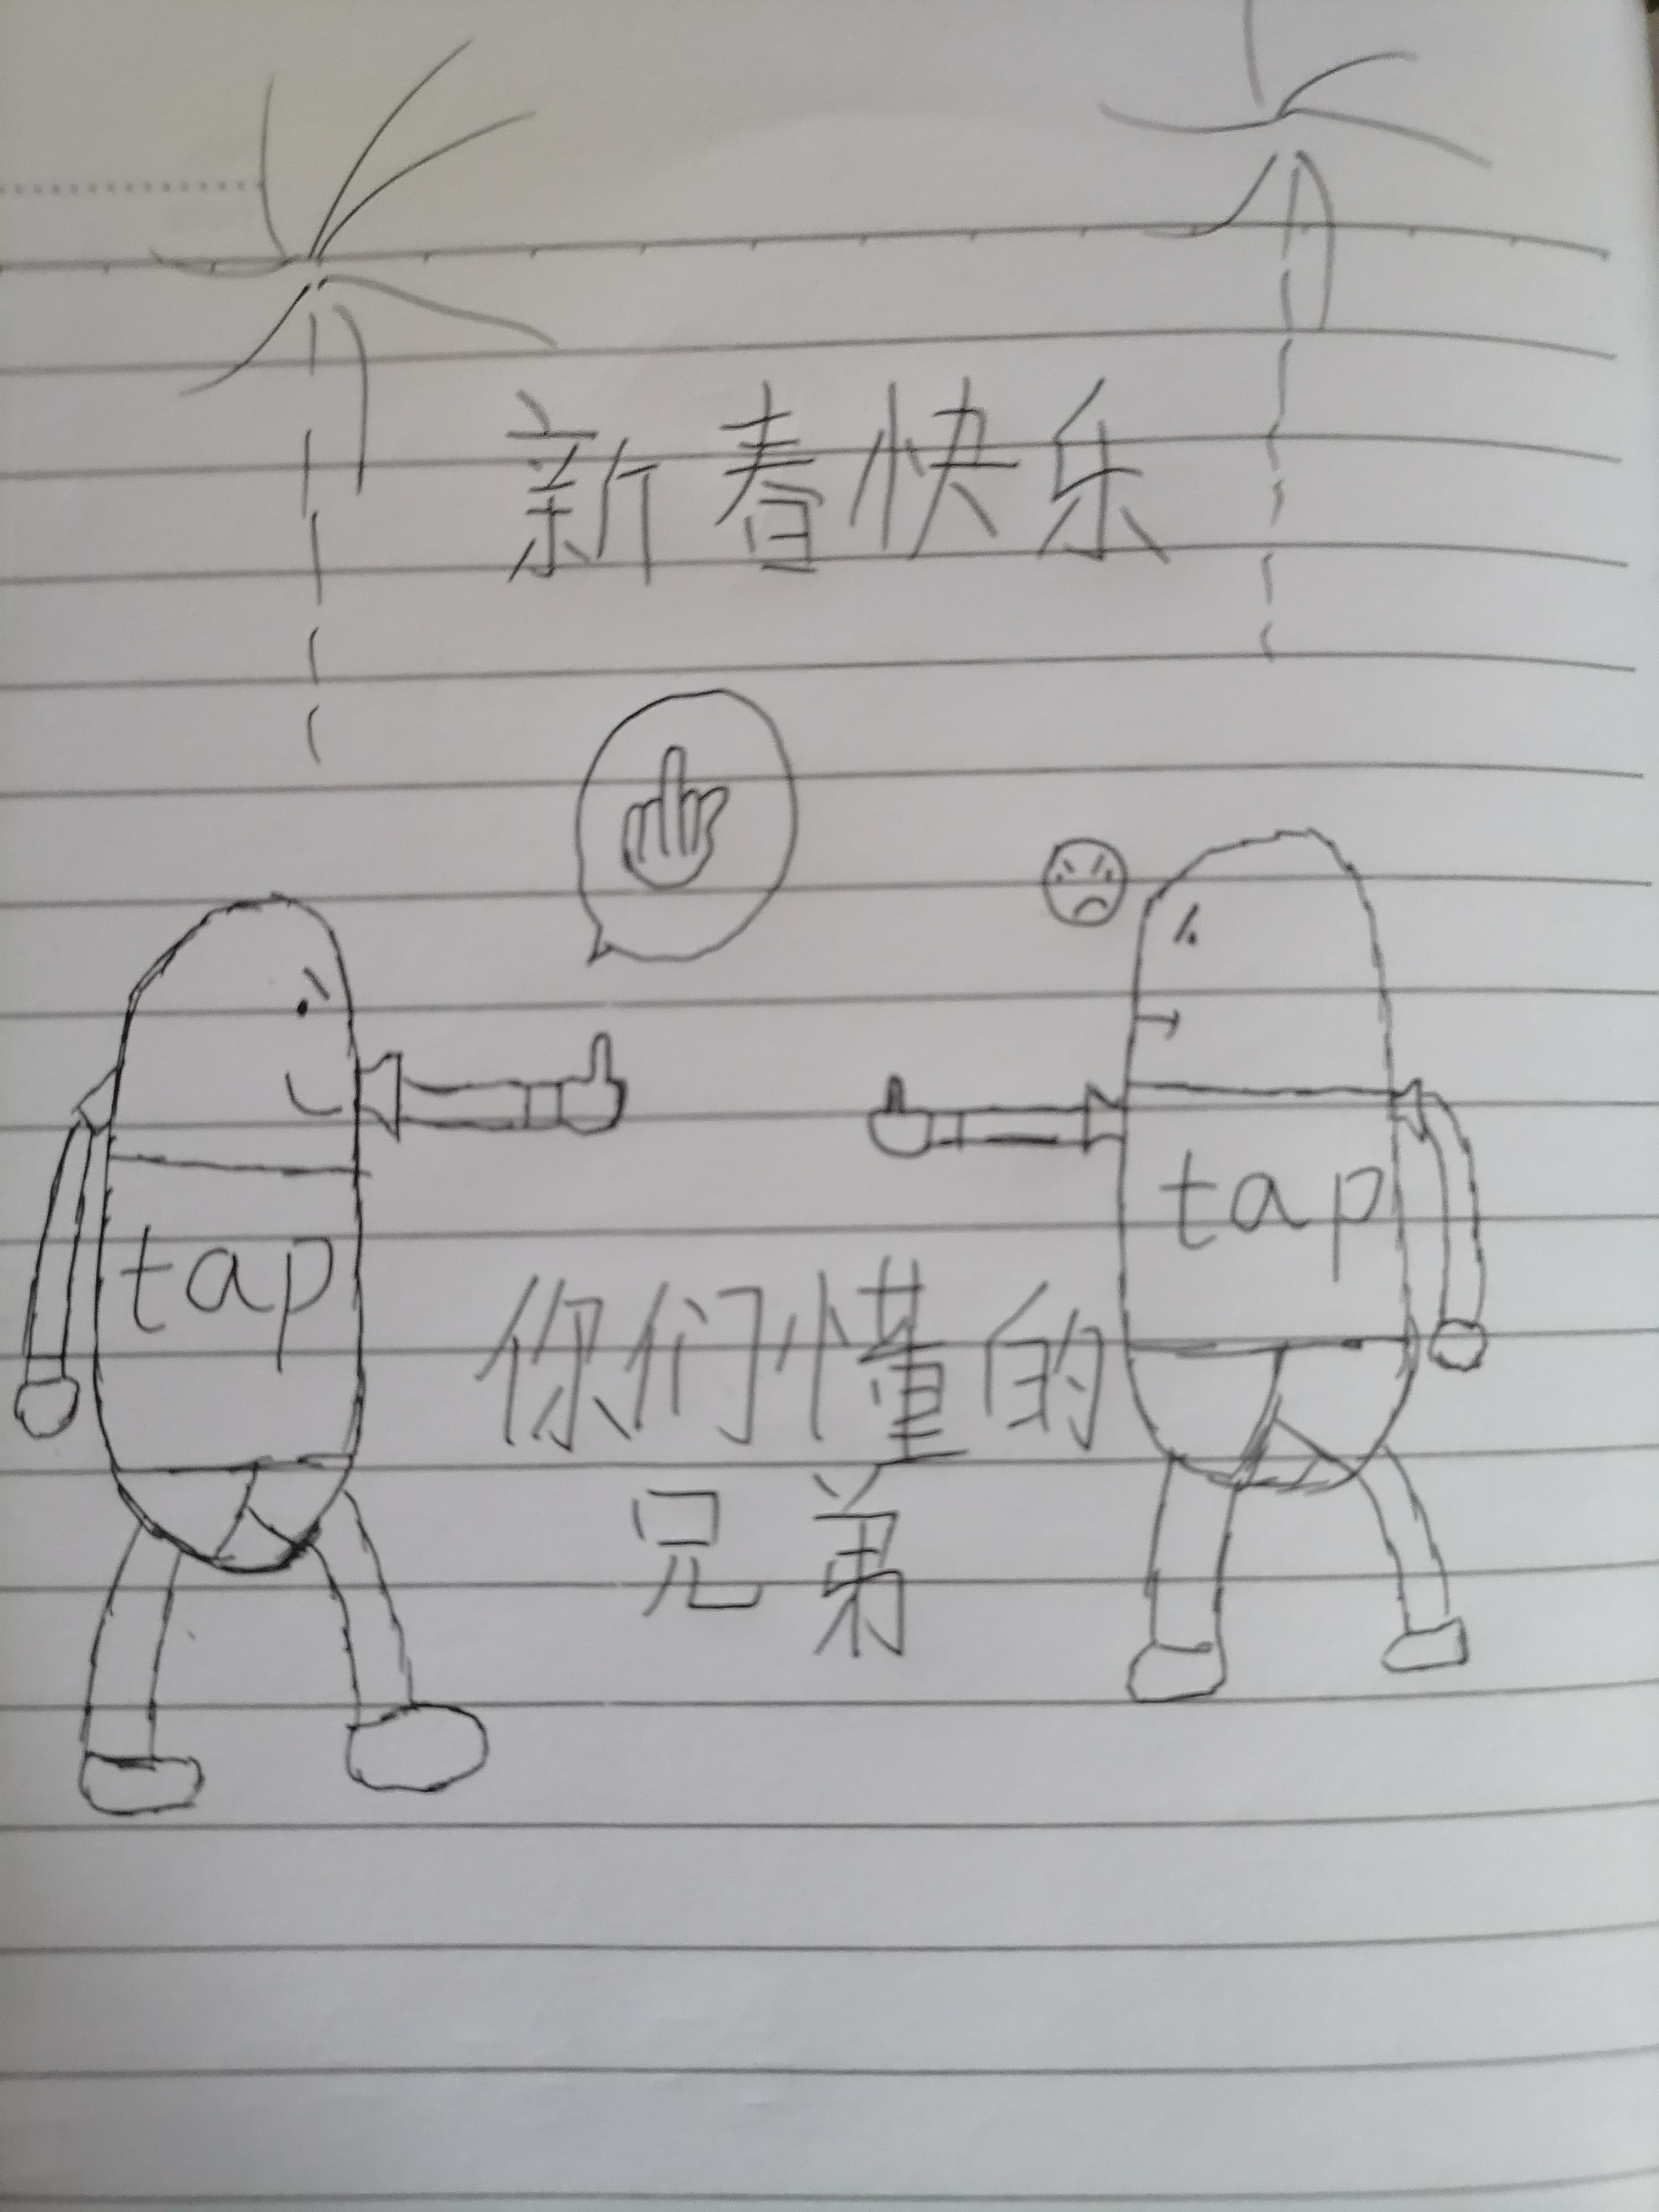 新春快乐
tap
tap
你们懂的
兄弟